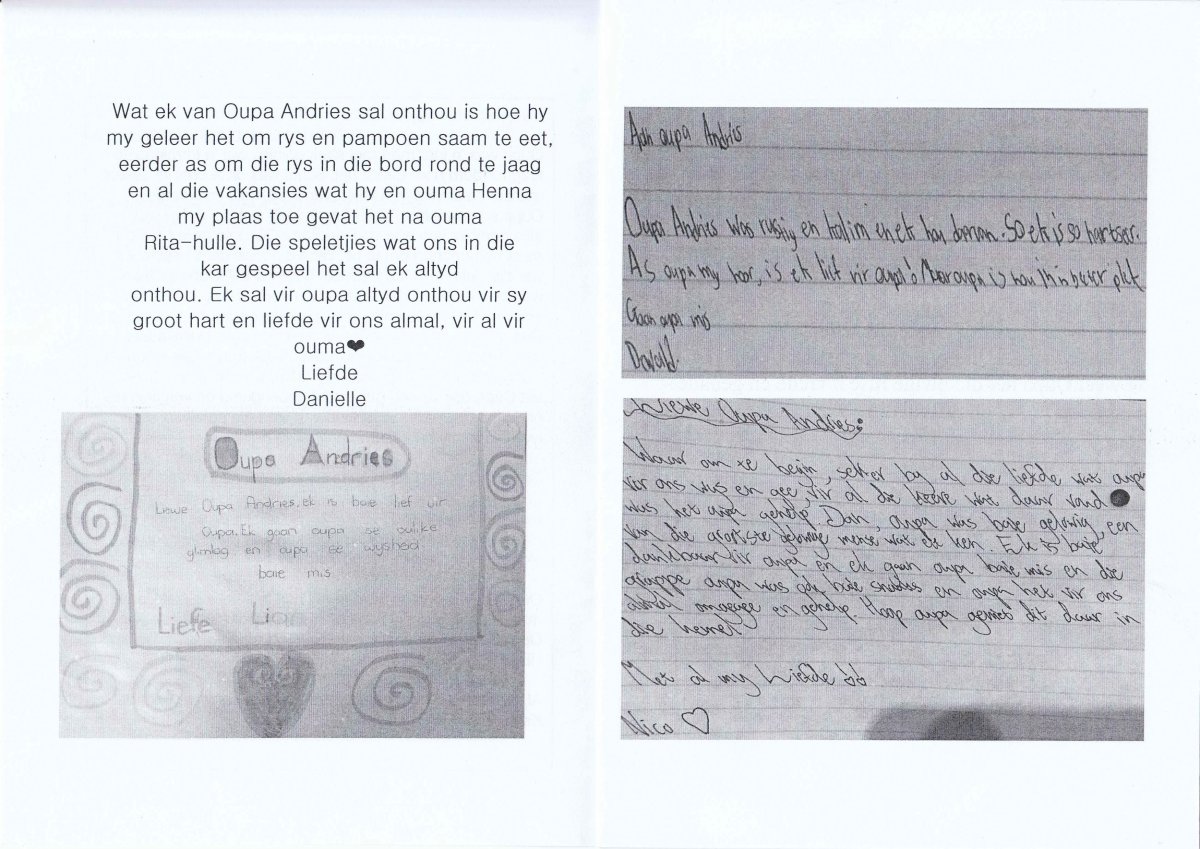 Wat ek van Oupa Andries sal onthou is hoe hy
my geleer het om rys en pampoen saam te eet,
eerder as om die rys in die bord rond te jaag
en al die vakansies wat hy en ouma Henna
my plaas toe gevat het na ouma
Rita-hulle. Die speletjies wat ons in die
kar gespeel het sal ek altyd
onthou. Ek sal vir oupa altyd onthou vir sy
groot hart en liefde vir ons almal, vir al vir
ouma❤
Liefde
Danielle
Oupa Andries
Liewe Oupa Andries, ek is baie lief vir
Oupa. Ek gaan oupa se oulike
glimlag en oupa se wysheid
baie mis
Liefe
Aan oupa Andries
Oupa Andries was rustig en kalm en ek hou daarvan. So ek is so hartseer.
As oupa my hoor, is ek lief vir oupa! Maar oupa is nou in 'n beter plek
Gaan oupa mis
Liewe Oupa Andries:
Waar om te begin, seker by al die liefde wat oupa
vir ons wys en gee, vir al die kere wat daar raad
was het oupa gehelp. Dan, oupa was baie gelowig, een
van die grootste gelowige mense wat ek ken. Ek is baie
dankbaar vir oupa en ek gaan oupa baie mis en die
grappe oupa was ook baie snaaks en oupa het vir ons
almal omgegee en gehelp. Hoop oupa geniet dit daar in
die hemel
Met al my Liefde
Nico ♡